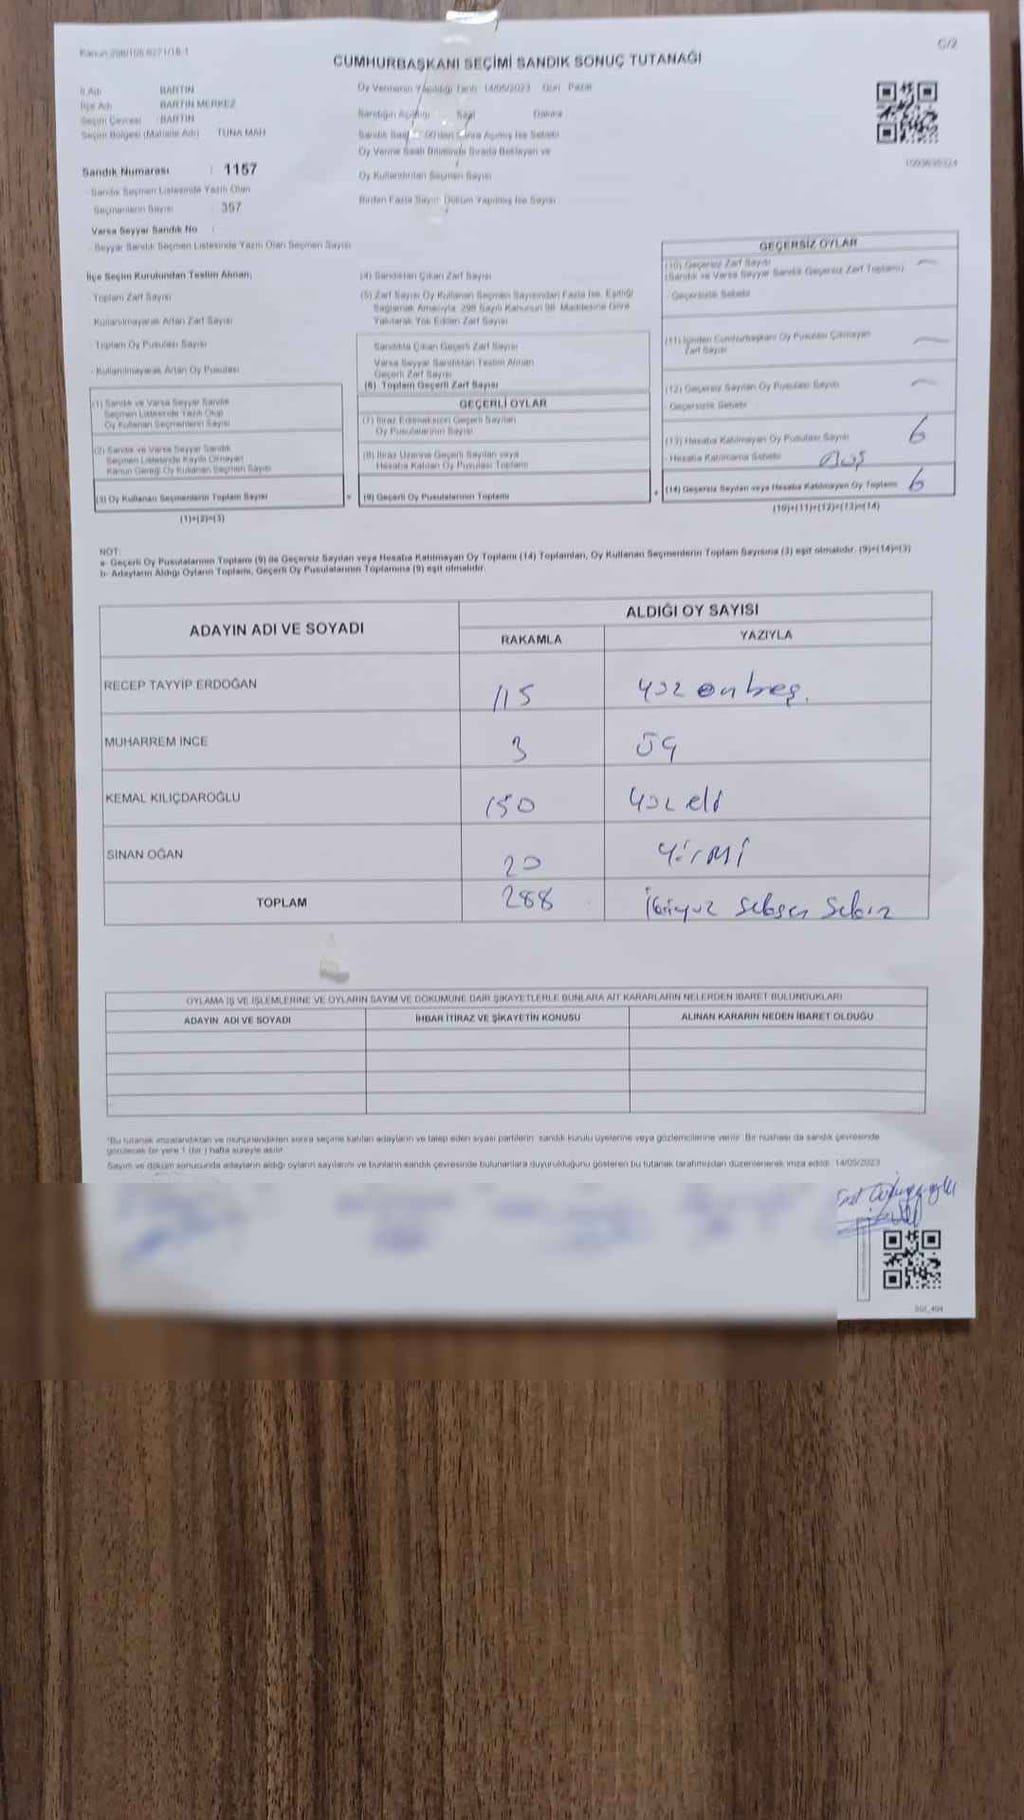 C/2
CUMHURBAŞKANI SEÇİMİ SANDIK SONUÇ TUTANAĞI
İl Adı BARTIN
İlçe Adı BARTIN MERKEZ
Seçim Çevresi : BARTIN
Seçim Bölgesi (Mahalle Adı) TUNA MAH
Sandık Numarası : 1157
Sandık Seçmen Listesinde Yazılı Olan
Seçmenlerin Sayısı : 357
Varsa Seyyar Sandık No :
- Seyyar Sandık Seçmen Listesinde Yazılı Olan Seçmen Sayısı
Oy Vermenin Yapıldığı Tarih 14/05/2023 Gün Pazar
Sandığın Açıldığı Saat Dakika
Oy Kullandırılan Seçmen Sayısı
İlçe Seçim Kurulundan Teslim Alınan;
- Toplam Zarf Sayısı
- Kullanılmayarak Artan Zarf Sayısı
- Toplam Oy Pusulası Sayısı
- Kullanılmayarak Artan Oy Pusulası
(1) Sandık ve Varsa Seyyar Sandık
Seçmen Listesinde Yazılı Olup
Oy Kullanan Seçmenlerin Sayısı
(2) Sandık ve Varsa Seyyar Sandık
Seçmen Listesinde Kayıtlı Olmayan
Kanun Gereği Oy Kullanan Seçmen Sayısı
(3) Oy Kullanan Seçmenlerin Toplam Sayısı
(1)+(2)=(3)
(4) Sandıktan Çıkan Zarf Sayısı
(5) Zarf Sayısı Oy Kullanan Seçmen Sayısından Fazla İse, Eşitliği
Sağlamak Amacıyla, 298 Sayılı Kanunun 98. Maddesine Göre
Yakılarak Yok Edilen Zarf Sayısı
Sandıkta Çıkan Geçerli Zarf Sayısı
Varsa Seyyar Sandıktan Teslim Alınan
Geçerli Zarf Sayısı
(6) Toplam Geçerli Zarf Sayısı
GEÇERLİ OYLAR
(7) İtiraz Edilmeksizin Geçerli Sayılan
Oy Pusulalarının Sayısı
(8) İtiraz Üzerine Geçerli Sayılan veya
Hesaba Katılan Oy Pusulası Toplamı
(9) Geçerli Oy Pusulalarının Toplamı
GEÇERSİZ OYLAR
(10) Geçersiz Zarf Sayısı
(Sandık ve Varsa Seyyar Sandık Geçersiz Zarf Toplamı)
- Geçersizlik Sebebi
(11) İçinden Cumhurbaşkanı Oy Pusulası Çıkmayan
Zarf Sayısı
(12) Geçersiz Sayılan Oy Pusulası Sayısı
- Geçersizlik Sebebi
(13) Hesaba Katılmayan Oy Pusulası Sayısı 6
- Hesaba Katılmama Sebebi Boş
(14) Geçersiz Sayılan veya Hesaba Katılmayan Oy Toplamı 6
(10)+(11)+(12)+(13)=(14)
NOT:
a- Geçerli Oy Pusulalarının Toplamı (9) ile Geçersiz Sayılan veya Hesaba Katılmayan Oy Toplamı (14) Toplamları, Oy Kullanan Seçmenlerin Toplam Sayısına (3) eşit olmalıdır. (9)+(14)=(3)
b- Adayların Aldığı Oyların Toplamı, Geçerli Oy Pusulalarının Toplamına (9) eşit olmalıdır.
ADAYIN ADI VE SOYADI ALDIĞI OY SAYISI
RAKAMLA YAZIYLA
RECEP TAYYİP ERDOĞAN 115 yüz on beş.
MUHARREM İNCE 3 üç
KEMAL KILIÇDAROĞLU 150 yüz elli
SİNAN OĞAN 20 yirmi
TOPLAM 288 ikiyüz seksen sekiz
OYLAMA İŞ VE İŞLEMLERİNE VE OYLARIN SAYIM VE DÖKÜMÜNE DAİR ŞİKAYETLERLE BUNLARA AİT KARARLARIN NELERDEN İBARET BULUNDUKLARI
ADAYIN ADI VE SOYADI İHBAR İTİRAZ VE ŞİKAYETİN KONUSU ALINAN KARARIN NEDEN İBARET OLDUĞU
*Bu tutanak imzalandıktan ve mühürlendikten sonra seçime katılan adayların ve talep eden siyasi partilerin sandık kurulu üyelerine veya gözlemcilerine verilir. Bir nüshası da sandık çevresinde
görülecek bir yere 1 (bir) hafta süreyle asılır.
Sayım ve döküm sonucunda adayların aldığı oyların sayılarını ve bunların sandık çevresinde bulunanlara duyurulduğunu gösteren bu tutanak tarafımızdan düzenlenerek imza edildi. 14/05/2023